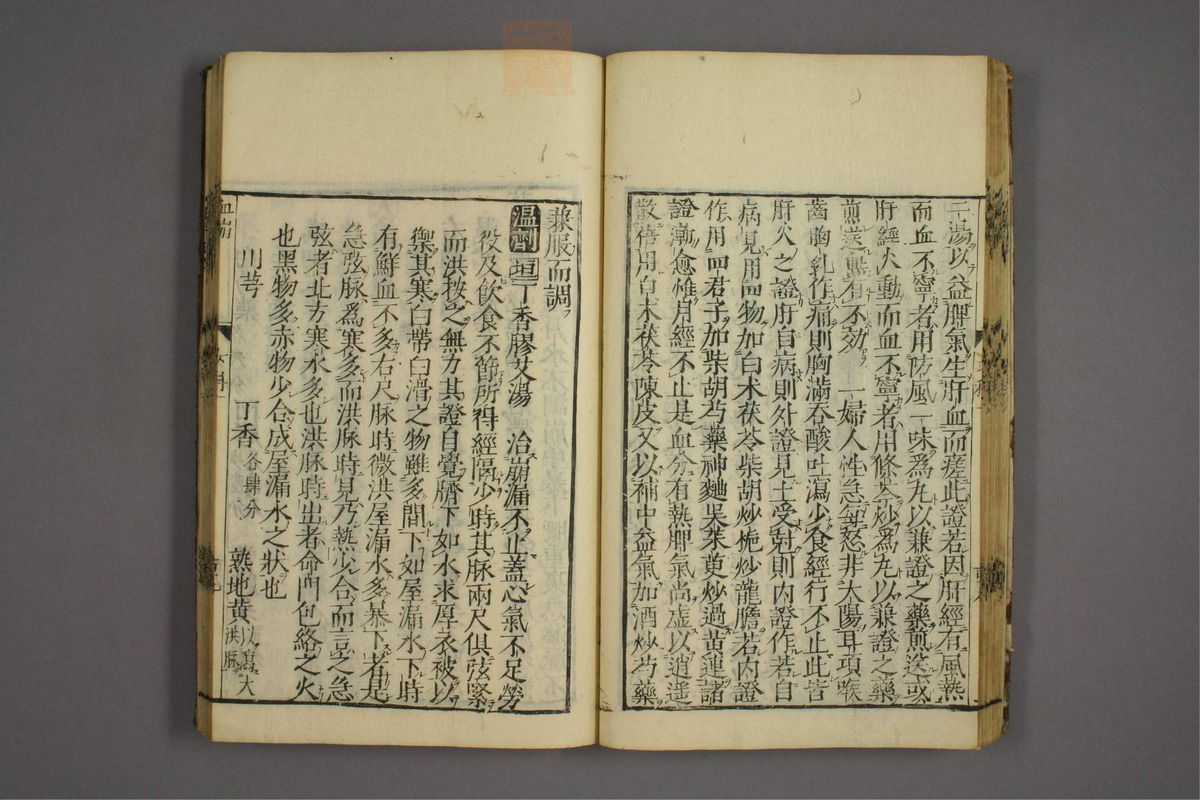 二湯以益脾氣生肝血而瘥此證若因肝經有風熱
而血不寧者用防風一味為丸以兼證之藥煎送或
肝經火動而血不寧者用條芩炒為丸以兼證之藥
煎送無有不效 一婦人性急每怒非太陽耳項喉
齒胸乳作痛則胸滿吞酸吐瀉少食經行不止此皆
肝火之證肝自病則外證見土受尅則內證作若自
病見用四物加白朮茯苓柴胡炒梔炒龍膽若內證
作用四君子加柴胡芍藥神麯吳茱萸炒過黃連諸
證漸愈惟月經不止是血分有熱脾氣尚虛以逍遙
散倍用白朮茯苓陳皮又以補中益氣加酒炒芍藥
兼服而調
溫劑 垣 丁香膠艾湯 治崩漏不止蓋心氣不足勞
役及飲食不節所得經隔少時其脉兩尺俱弦緊
而洪按之無力其證自覺臍下如水求厚衣被以
禦其寒白帶白滑之物雖多間下如屋漏水下時
有鮮血不多右尺脉時微洪屋漏水多暴下者是
急弦脉為寒多而洪脉時見乃熱少合而言之急
弦者北方寒水多也洪脉時出者命門包絡之火
也黑物多赤物少合成屋漏水之狀也
川芎 丁香各肆分 熟地黃
血崩